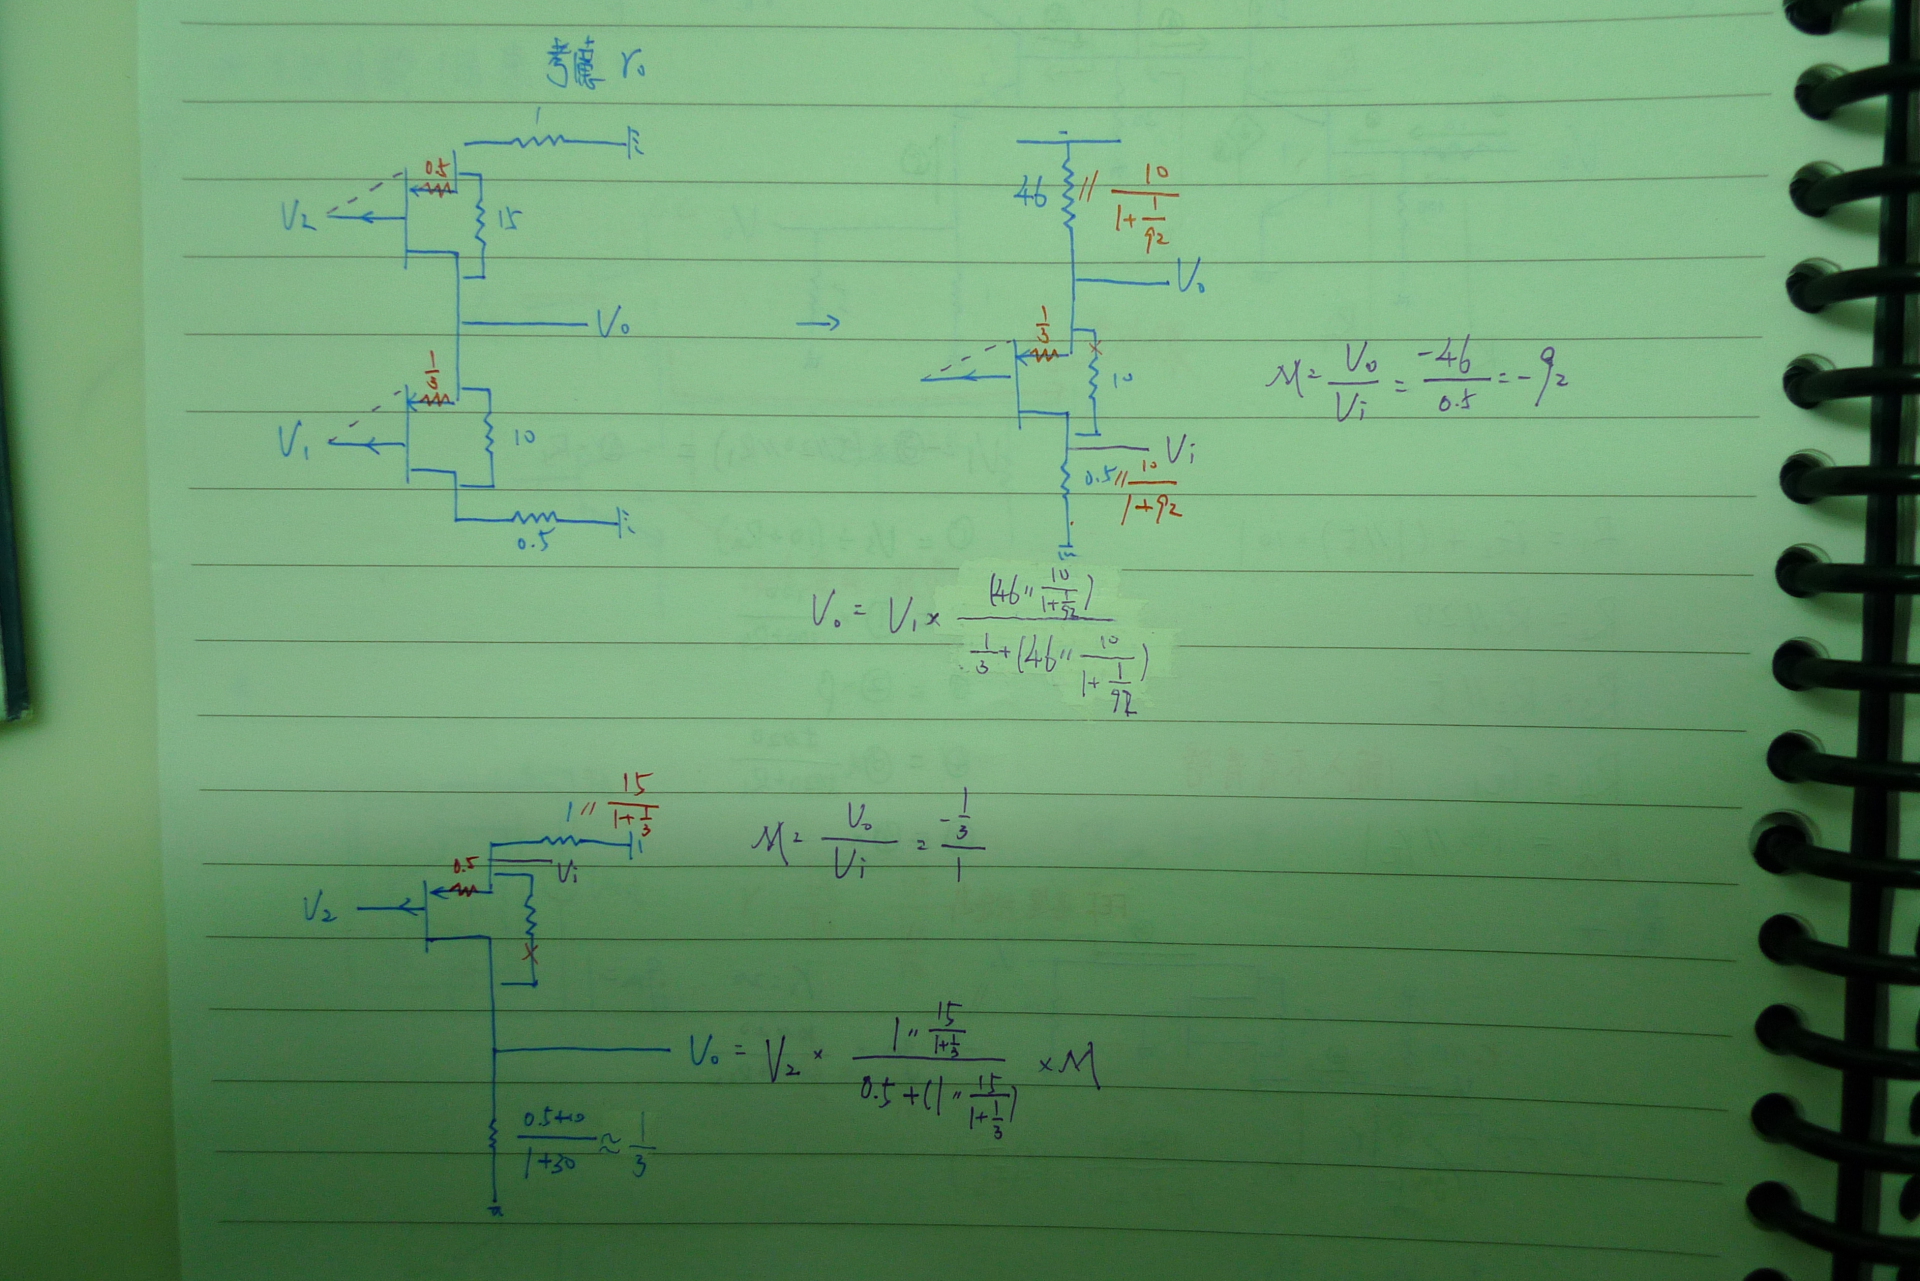 考慮 r₀
1
0.5
V2
15
V₀
1/3
V1
10
0.5
→
46 // 10/(1+1/92)
V₀
1/3
10
Vi
0.5 // 10/(1+92)
M = V₀/Vi = -46/0.5 = -92
V₀ = V₁ × (46 // 10/(1+1/92)) / (1/3 + (46 // 10/(1+1/92)))
1 // 15/(1+1/3)
0.5
Vi
V2
M = V₀/Vi = (-1/3)/1
V₀ = V₂ × (1 // 15/(1+1/3)) / (0.5 + (1 // 15/(1+1/3))) × M
(0.5+10)/(1+30) ≈ 1/3